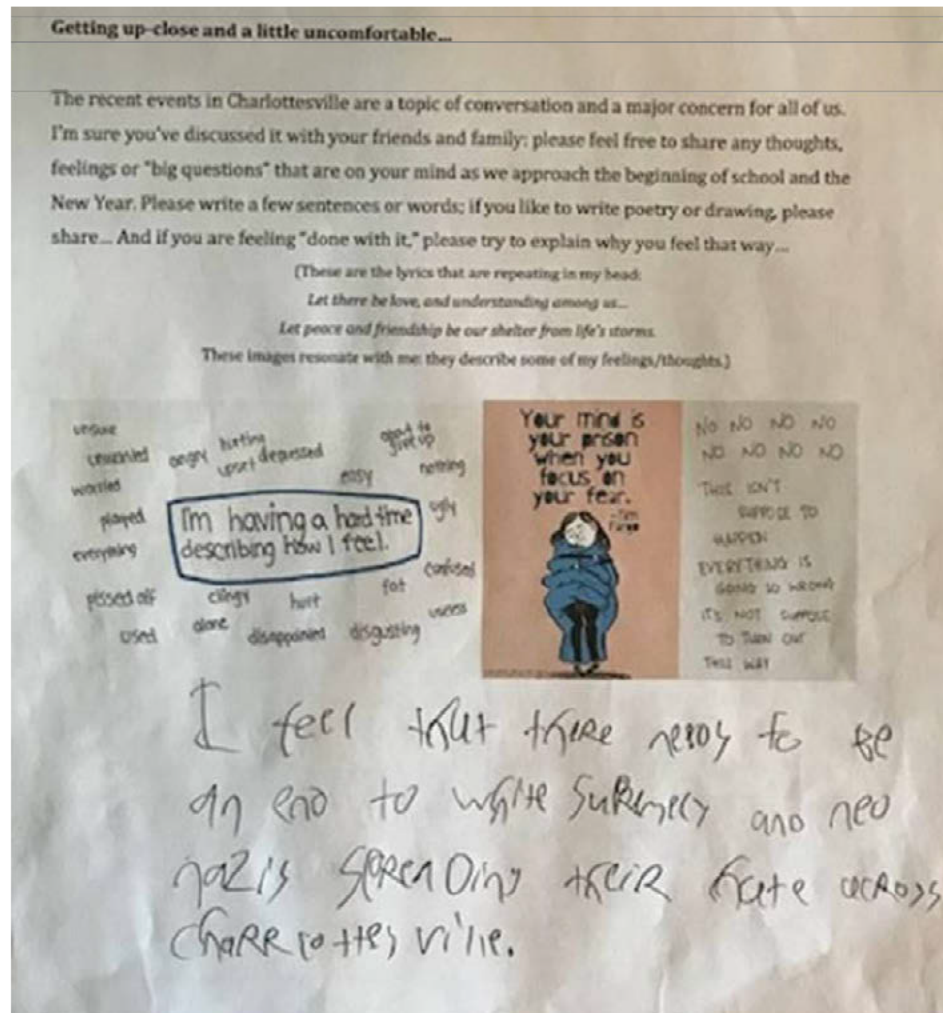 Getting up-close and a little uncomfortable...
The recent events in Charlottesville are a topic of conversation and a major concern for all of us.
I'm sure you've discussed it with your friends and family; please feel free to share any thoughts,
feelings or "big questions" that are on your mind as we approach the beginning of school and the
New Year. Please write a few sentences or words; if you like to write poetry or drawing, please
share... And if you are feeling "done with it," please try to explain why you feel that way...
(These are the lyrics that are repeating in my head:
Let there be love, and understanding among us...
Let peace and friendship be our shelter from life's storms.
These images resonate with me: they describe some of my feelings/thoughts.)
unsure
unwanted angry hurting upset depressed good to give up
worried easy nothing
played I'm having a hard time ugly
everything describing how I feel. confused
pissed off clingy hurt fat
used alone disappointed disgusting useless
Your mind is
your prison
when you
focus on
your fear.
NO NO NO NO
NO NO NO NO
THIS ISN'T
SUPPOSE TO
HAPPEN
EVERYTHING IS
GOING SO WRONG
IT'S NOT SUPPOSE
TO TURN OUT
THIS WAY
I feel that there needs to be
an end to white supremecy and neo
nazis spreading their hate across
charrlottesville.